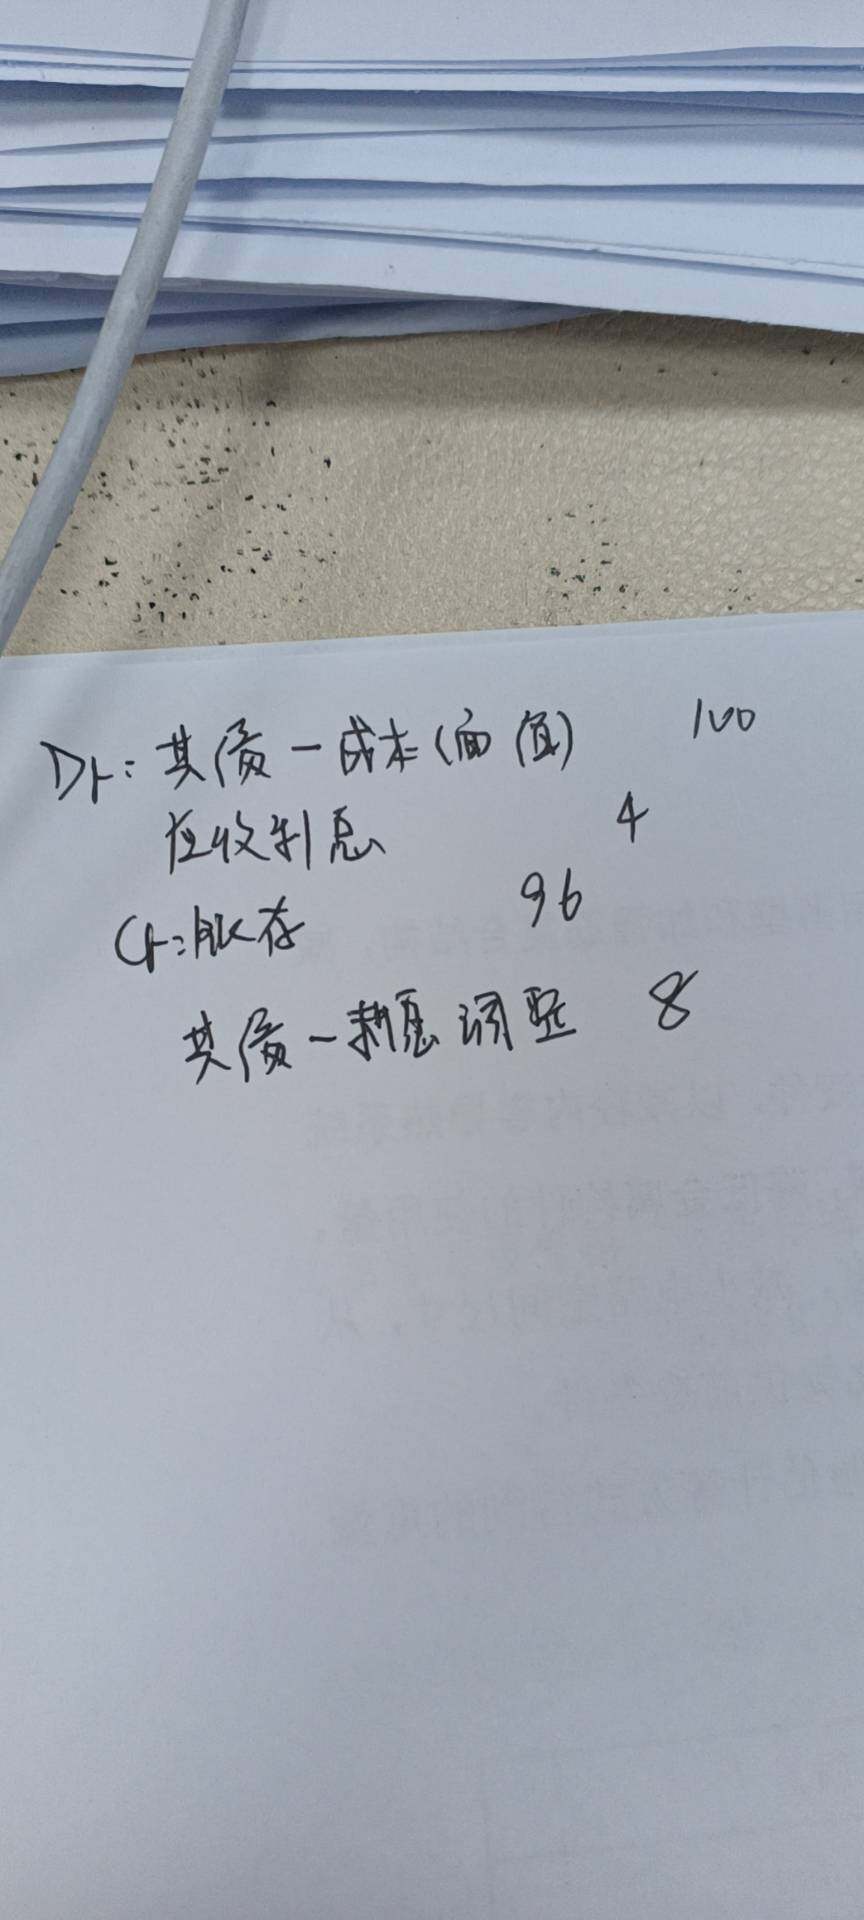 Dr：其债－成本(面值) 100
应收利息 4
Cr：银存 96
其债－利息调整 8